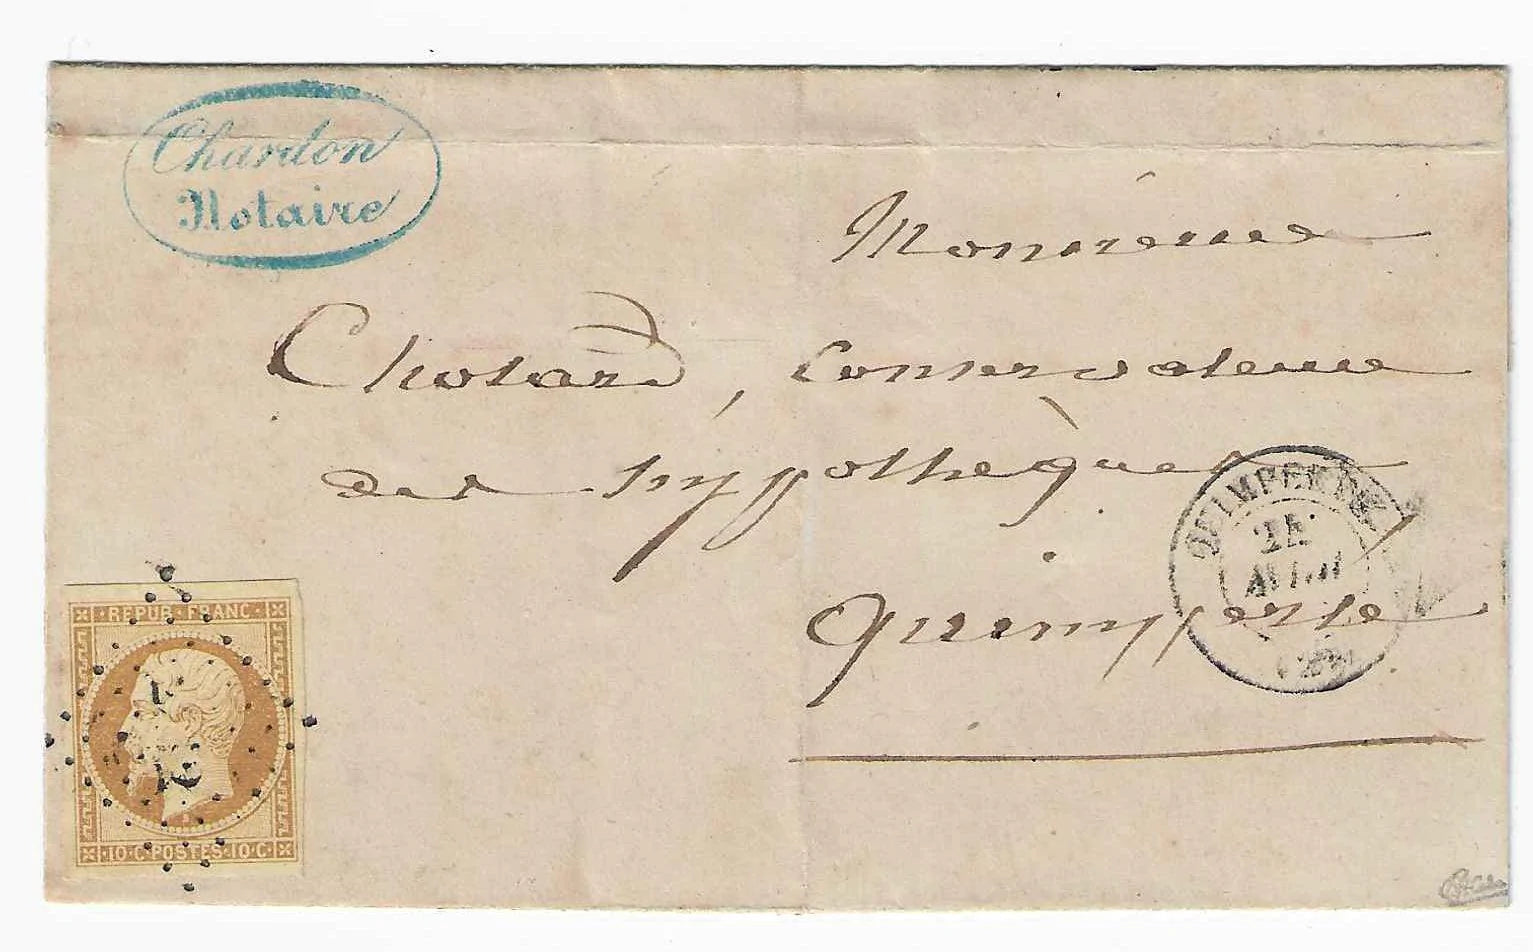 Chardon
Notaire
Monsieur
Chotard, Conservateur
des hypothèques
Quimperlé
QUIMPERLÉ
AVRIL
REPUB · FRANC
10 · C · POSTES · 10 · C